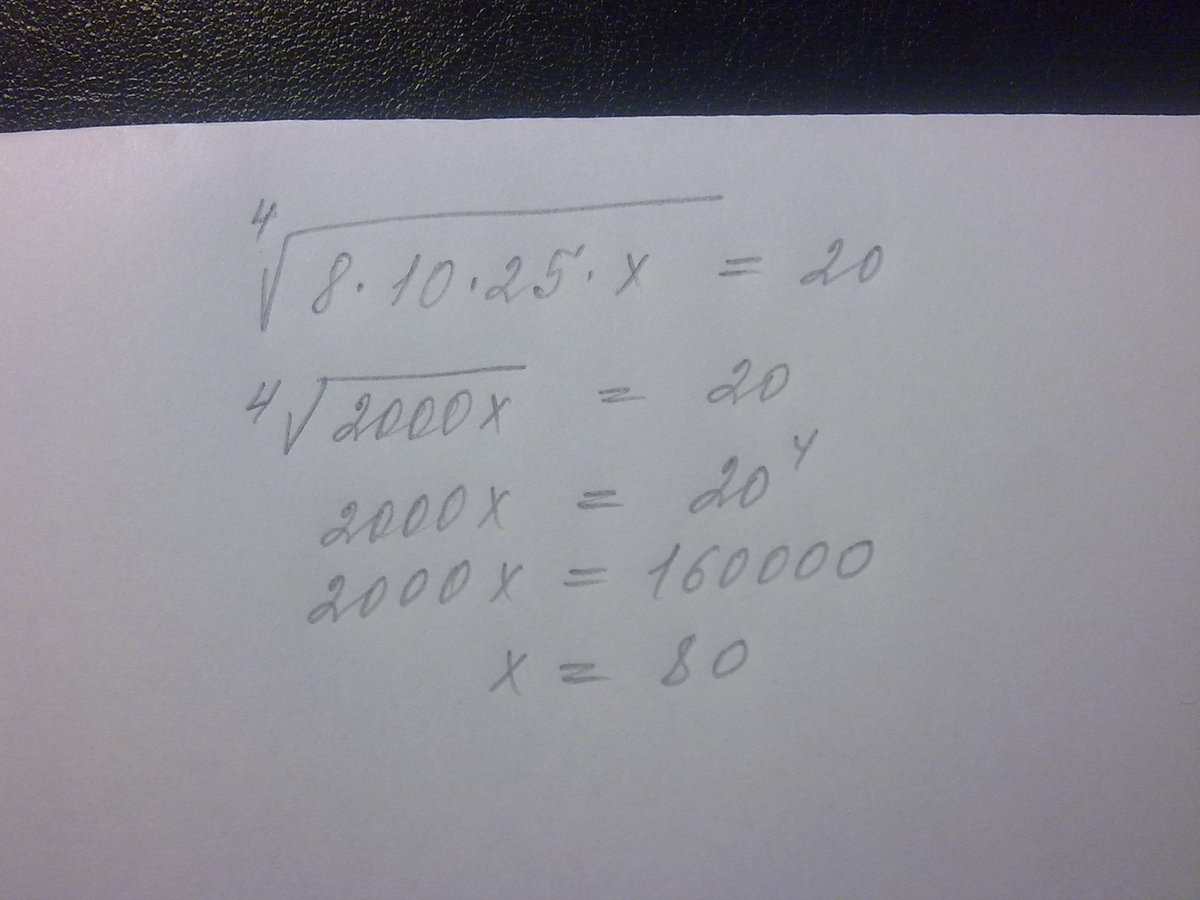 ⁴√(8·10·25·x) = 20
⁴√(2000x) = 20
2000x = 20⁴
2000x = 160000
x = 80